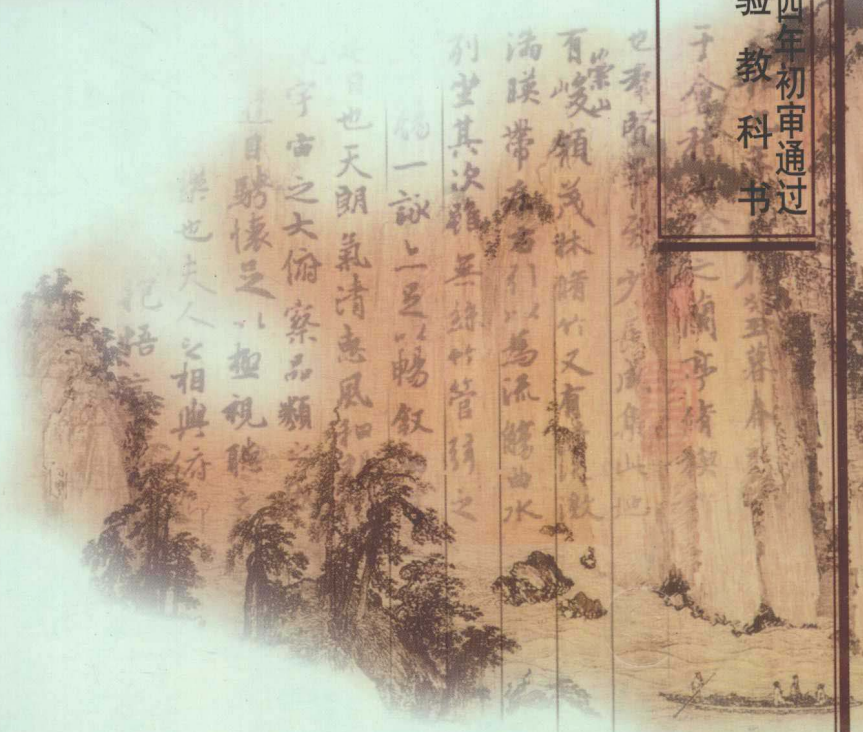 四年初审通过
验教科书
丑暮春
于會稽之蘭亭脩稧
也羣賢畢至少長咸集此地
有崇山峻領茂林脩竹又有清流激
湍暎帶左右引以為流觴曲水
列坐其次雖無絲竹管弦之
觴一詠亦足以暢敘
是日也天朗氣清惠風和
宇宙之大俯察品類之
遊目騁懷足以極視聽之
樂也夫人之相與俯仰
抱悟言